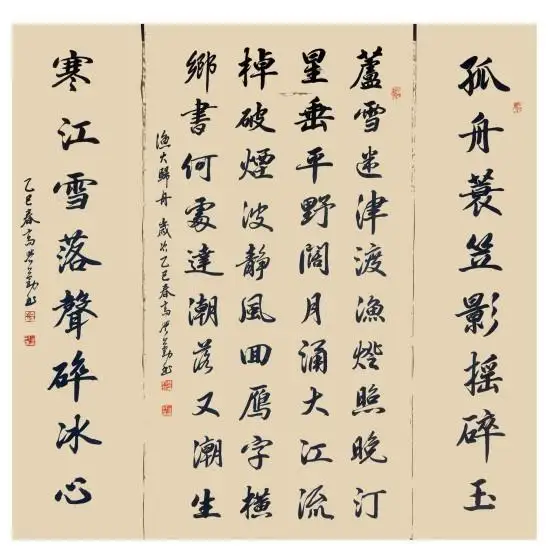 孤舟蓑笠影摇碎玉
蘆雪迷津渡漁燈照晚汀
星垂平野闊月涌大江流
棹破煙波靜風回雁字橫
鄉書何處達潮落又潮生
漁火歸舟 歲次乙巳春高
寒江雪落聲碎冰心
乙巳春高